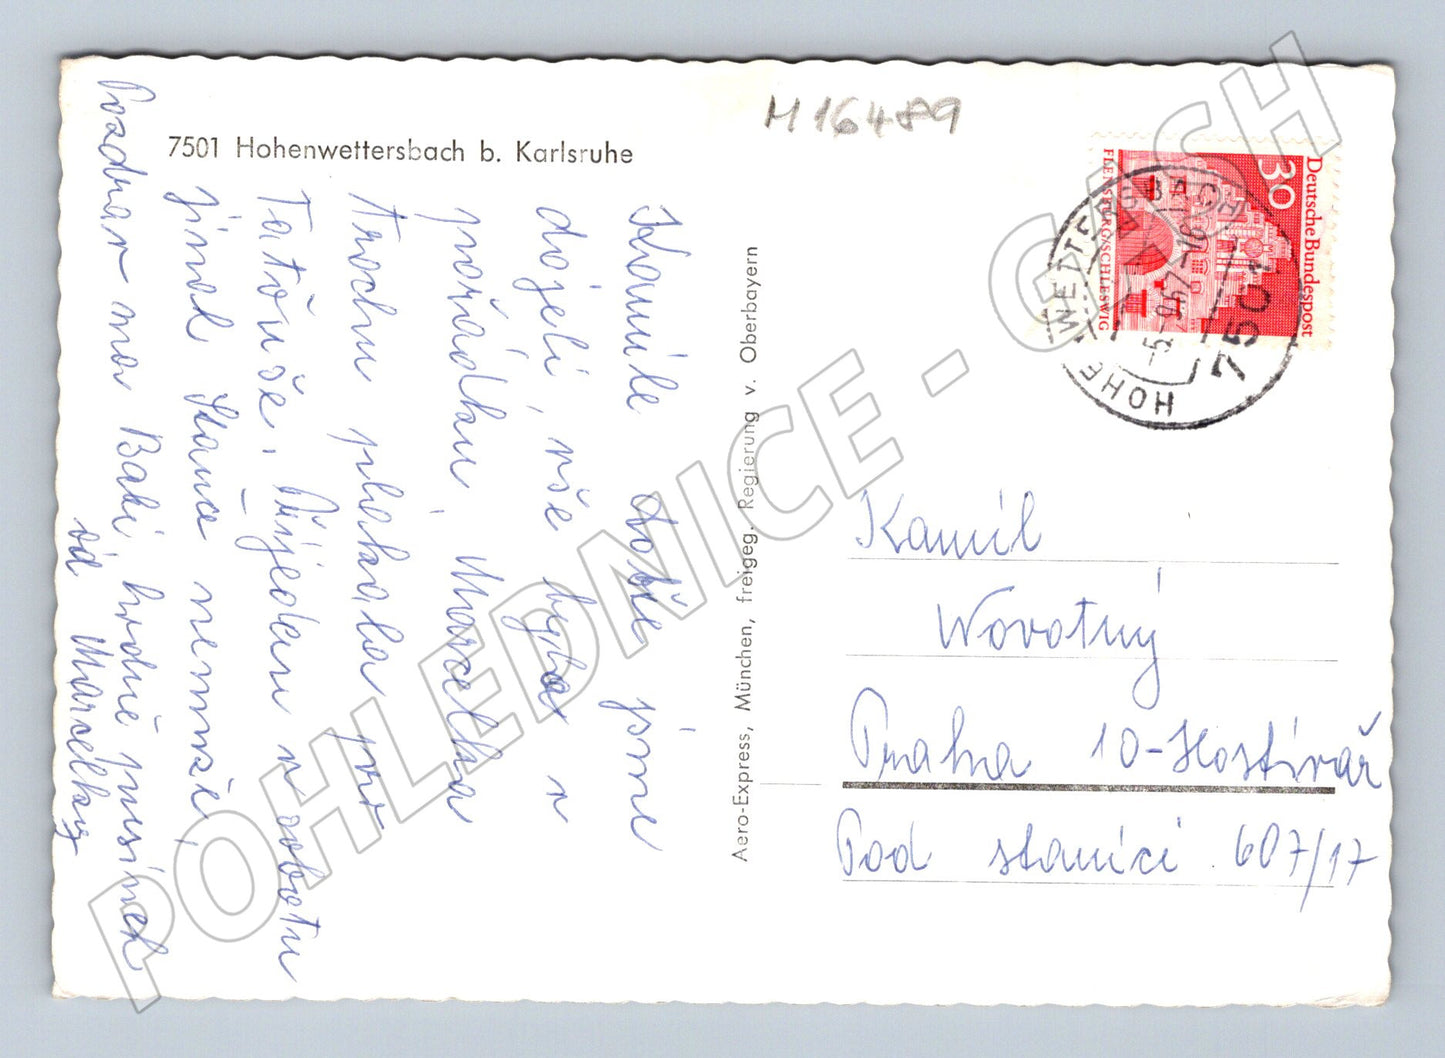 M 16489
7501 Hohenwettersbach b. Karlsruhe
Kamile dobře jsme
dojeli, vše bylo v
pořádku, Marcelka
trochu plakala pro
Tatouše. Přijedem v sobotu
jinak Stanice nemusíš,
Pozdrav na Babi, hodně pusinek
od Marcelky
Aero-Express, München, freigeg. Regierung v. Oberbayern
Deutsche Bundespost
30
FLENSBURG/SCHLESWIG
HOHENWETTERSBACH
7501
Kamil
Novotný
Praha 10-Hostivař
Pod stanicí 607/17
POHLEDNICE - CASH